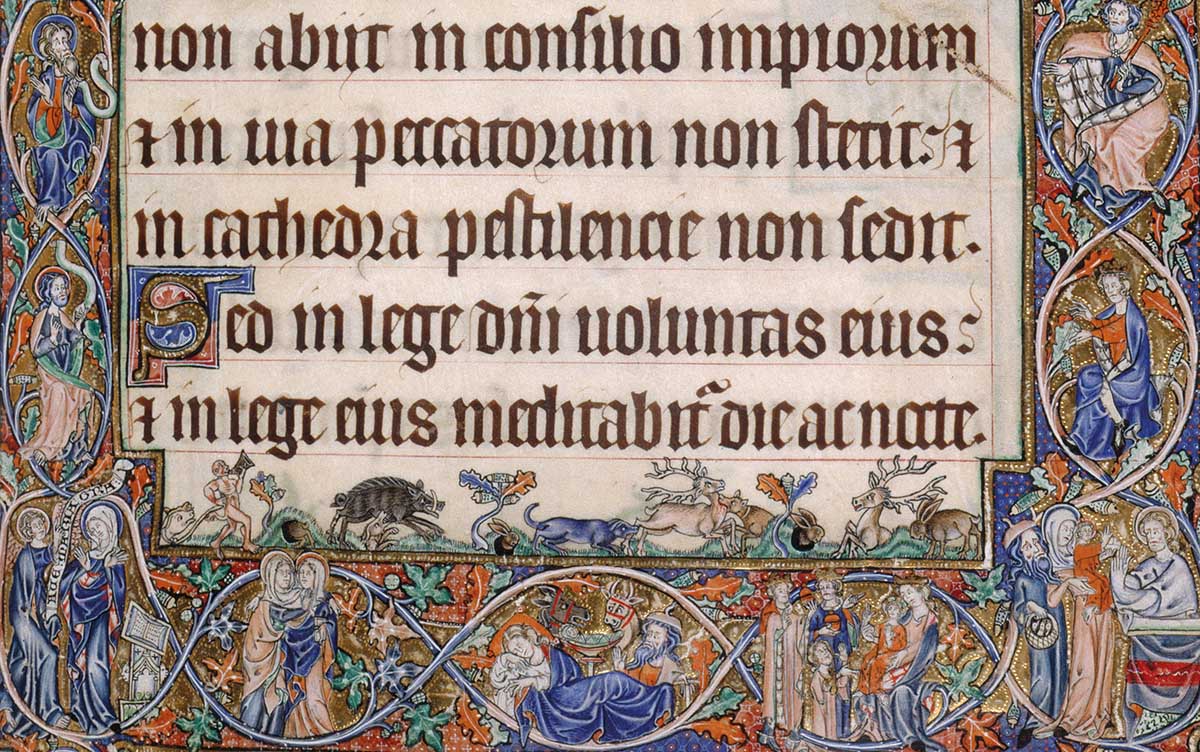 non abijt in consilio impiorum
⁊ in uia peccatorum non stetit: ⁊
in cathedra pestilencie non sedit.
Sed in lege dn̄i uoluntas eius:
⁊ in lege eius meditabit᷑ die ac nocte.